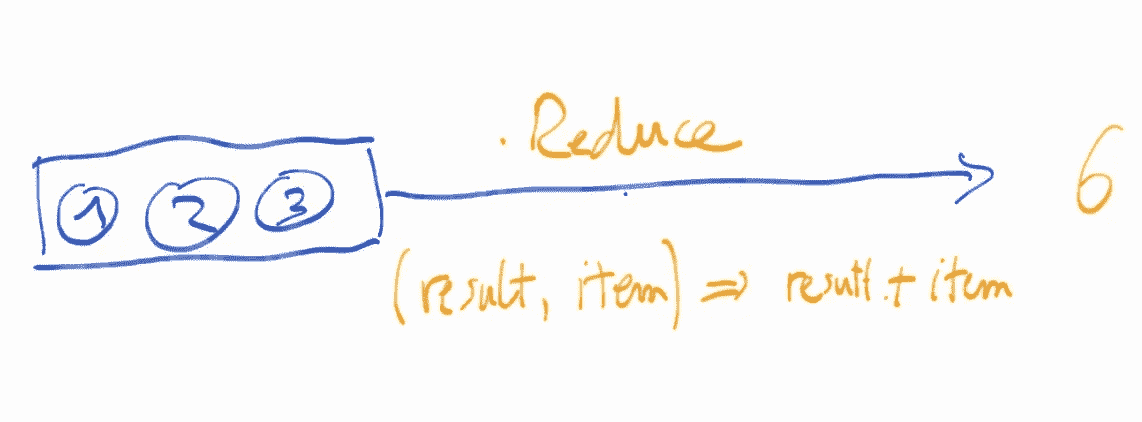 .Reduce
1 2 3
6
(result, item) => result + item